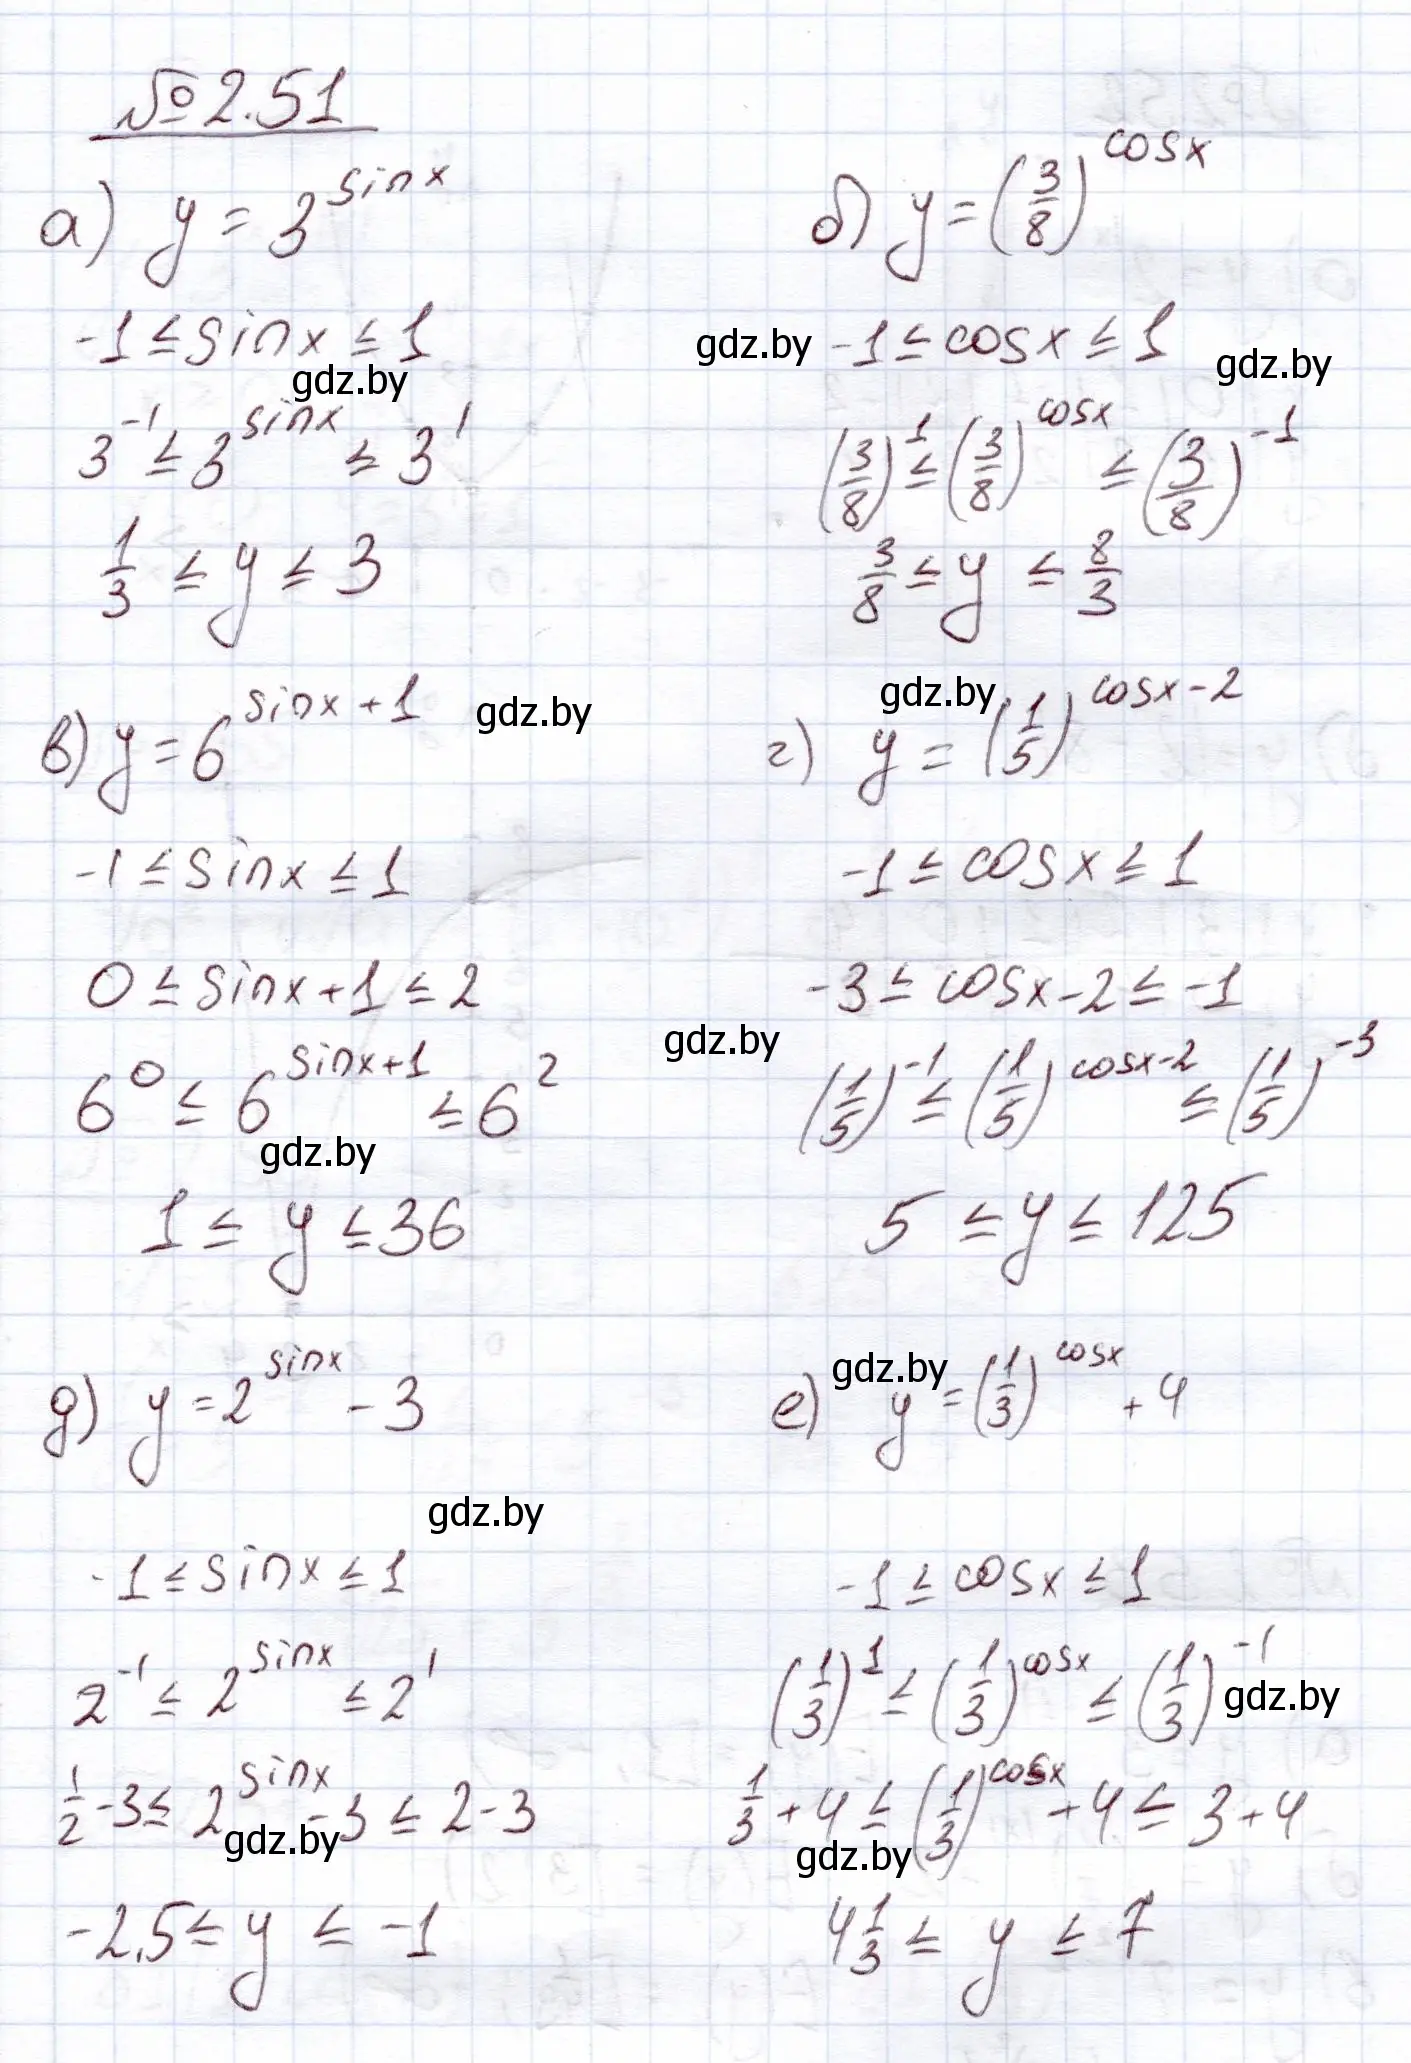 № 2.51
а) y = 3^{sinx}
-1 ≤ sinx ≤ 1
gdz.by
3^{-1} ≤ 3^{sinx} ≤ 3^1
1/3 ≤ y ≤ 3
б) y = (3/8)^{cosx}
gdz.by -1 ≤ cosx ≤ 1 gdz.by
(3/8)^1 ≤ (3/8)^{cosx} ≤ (3/8)^{-1}
3/8 ≤ y ≤ 8/3
в) y = 6^{sinx+1} gdz.by
-1 ≤ sinx ≤ 1
0 ≤ sinx+1 ≤ 2
6^0 ≤ 6^{sinx+1} ≤ 6^2
gdz.by
1 ≤ y ≤ 36
gdz.by
г) y = (1/5)^{cosx-2}
-1 ≤ cosx ≤ 1
-3 ≤ cosx-2 ≤ -1
gdz.by
(1/5)^{-1} ≤ (1/5)^{cosx-2} ≤ (1/5)^{-3}
5 ≤ y ≤ 125
д) y = 2^{sinx} - 3
gdz.by
-1 ≤ sinx ≤ 1
2^{-1} ≤ 2^{sinx} ≤ 2^1
1/2 - 3 ≤ 2^{sinx} - 3 ≤ 2 - 3
gdz.by
-2,5 ≤ y ≤ -1
gdz.by
е) y = (1/3)^{cosx} + 4
-1 ≤ cosx ≤ 1
(1/3)^1 ≤ (1/3)^{cosx} ≤ (1/3)^{-1}
gdz.by
1/3 + 4 ≤ (1/3)^{cosx} + 4 ≤ 3 + 4
gdz.by
4 1/3 ≤ y ≤ 7